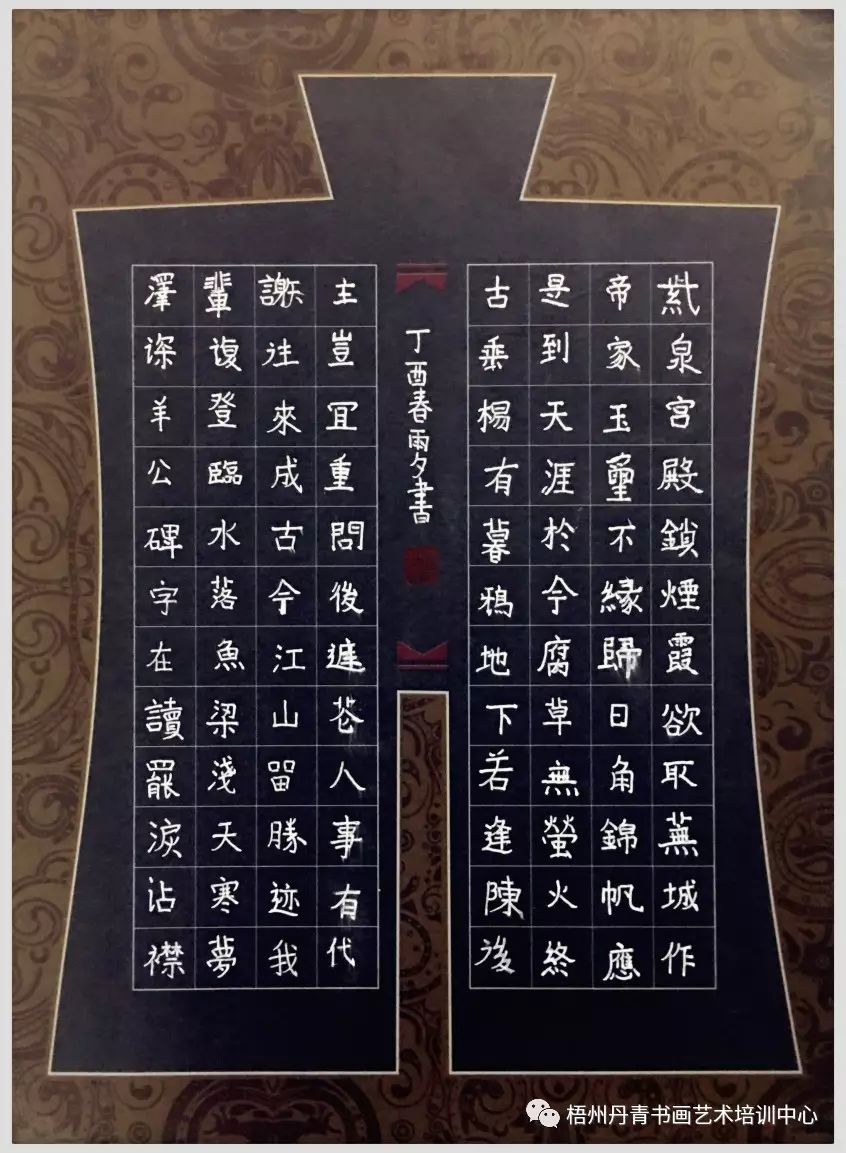 紫泉宮殿鎖煙霞欲取蕪城作
帝家玉璽不緣歸日角錦帆應
是到天涯於今腐草無螢火終
古垂楊有暮鴉地下若逢陳後
丁酉春雨夕書
主豈冝重問後庭花人事有代
謝往來成古今江山留勝迹我
輩復登臨水落魚梁淺天寒夢
澤深羊公碑字在讀罷淚沾襟
梧州丹青书画艺术培训中心